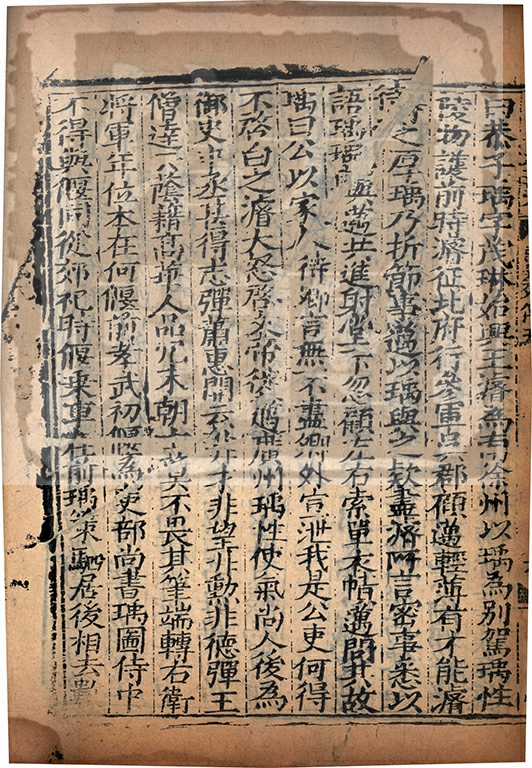 曰恭子瑀字茂琳始興王濬為南徐州以瑀為別駕瑀性
陵物護前時濬征北府行參軍吳郡顧邁輕薄有才能濬
待之厚瑀乃折節事邁以瑀與之欵盡濬所言密事悉以
語瑀瑀與邁共進射堂下忽顧左右索單衣幘邁問其故
瑀曰公以家人待卿言無不盡卿外宣泄我是公吏何得
不啓白之濬大怒啓文帝徙邁廣州瑀性使氣尚人後為
御史中丞甚得志彈蕭惠開云非才非望非動非德彈王
僧達云蔭籍高華人品冗末朝士莫不畏其筆端轉右衛
將軍年位本在何偃前孝武初偃為吏部尚書瑀圖侍中
不得與偃同從郊祀時偃乘車在前瑀策駟居後相去數